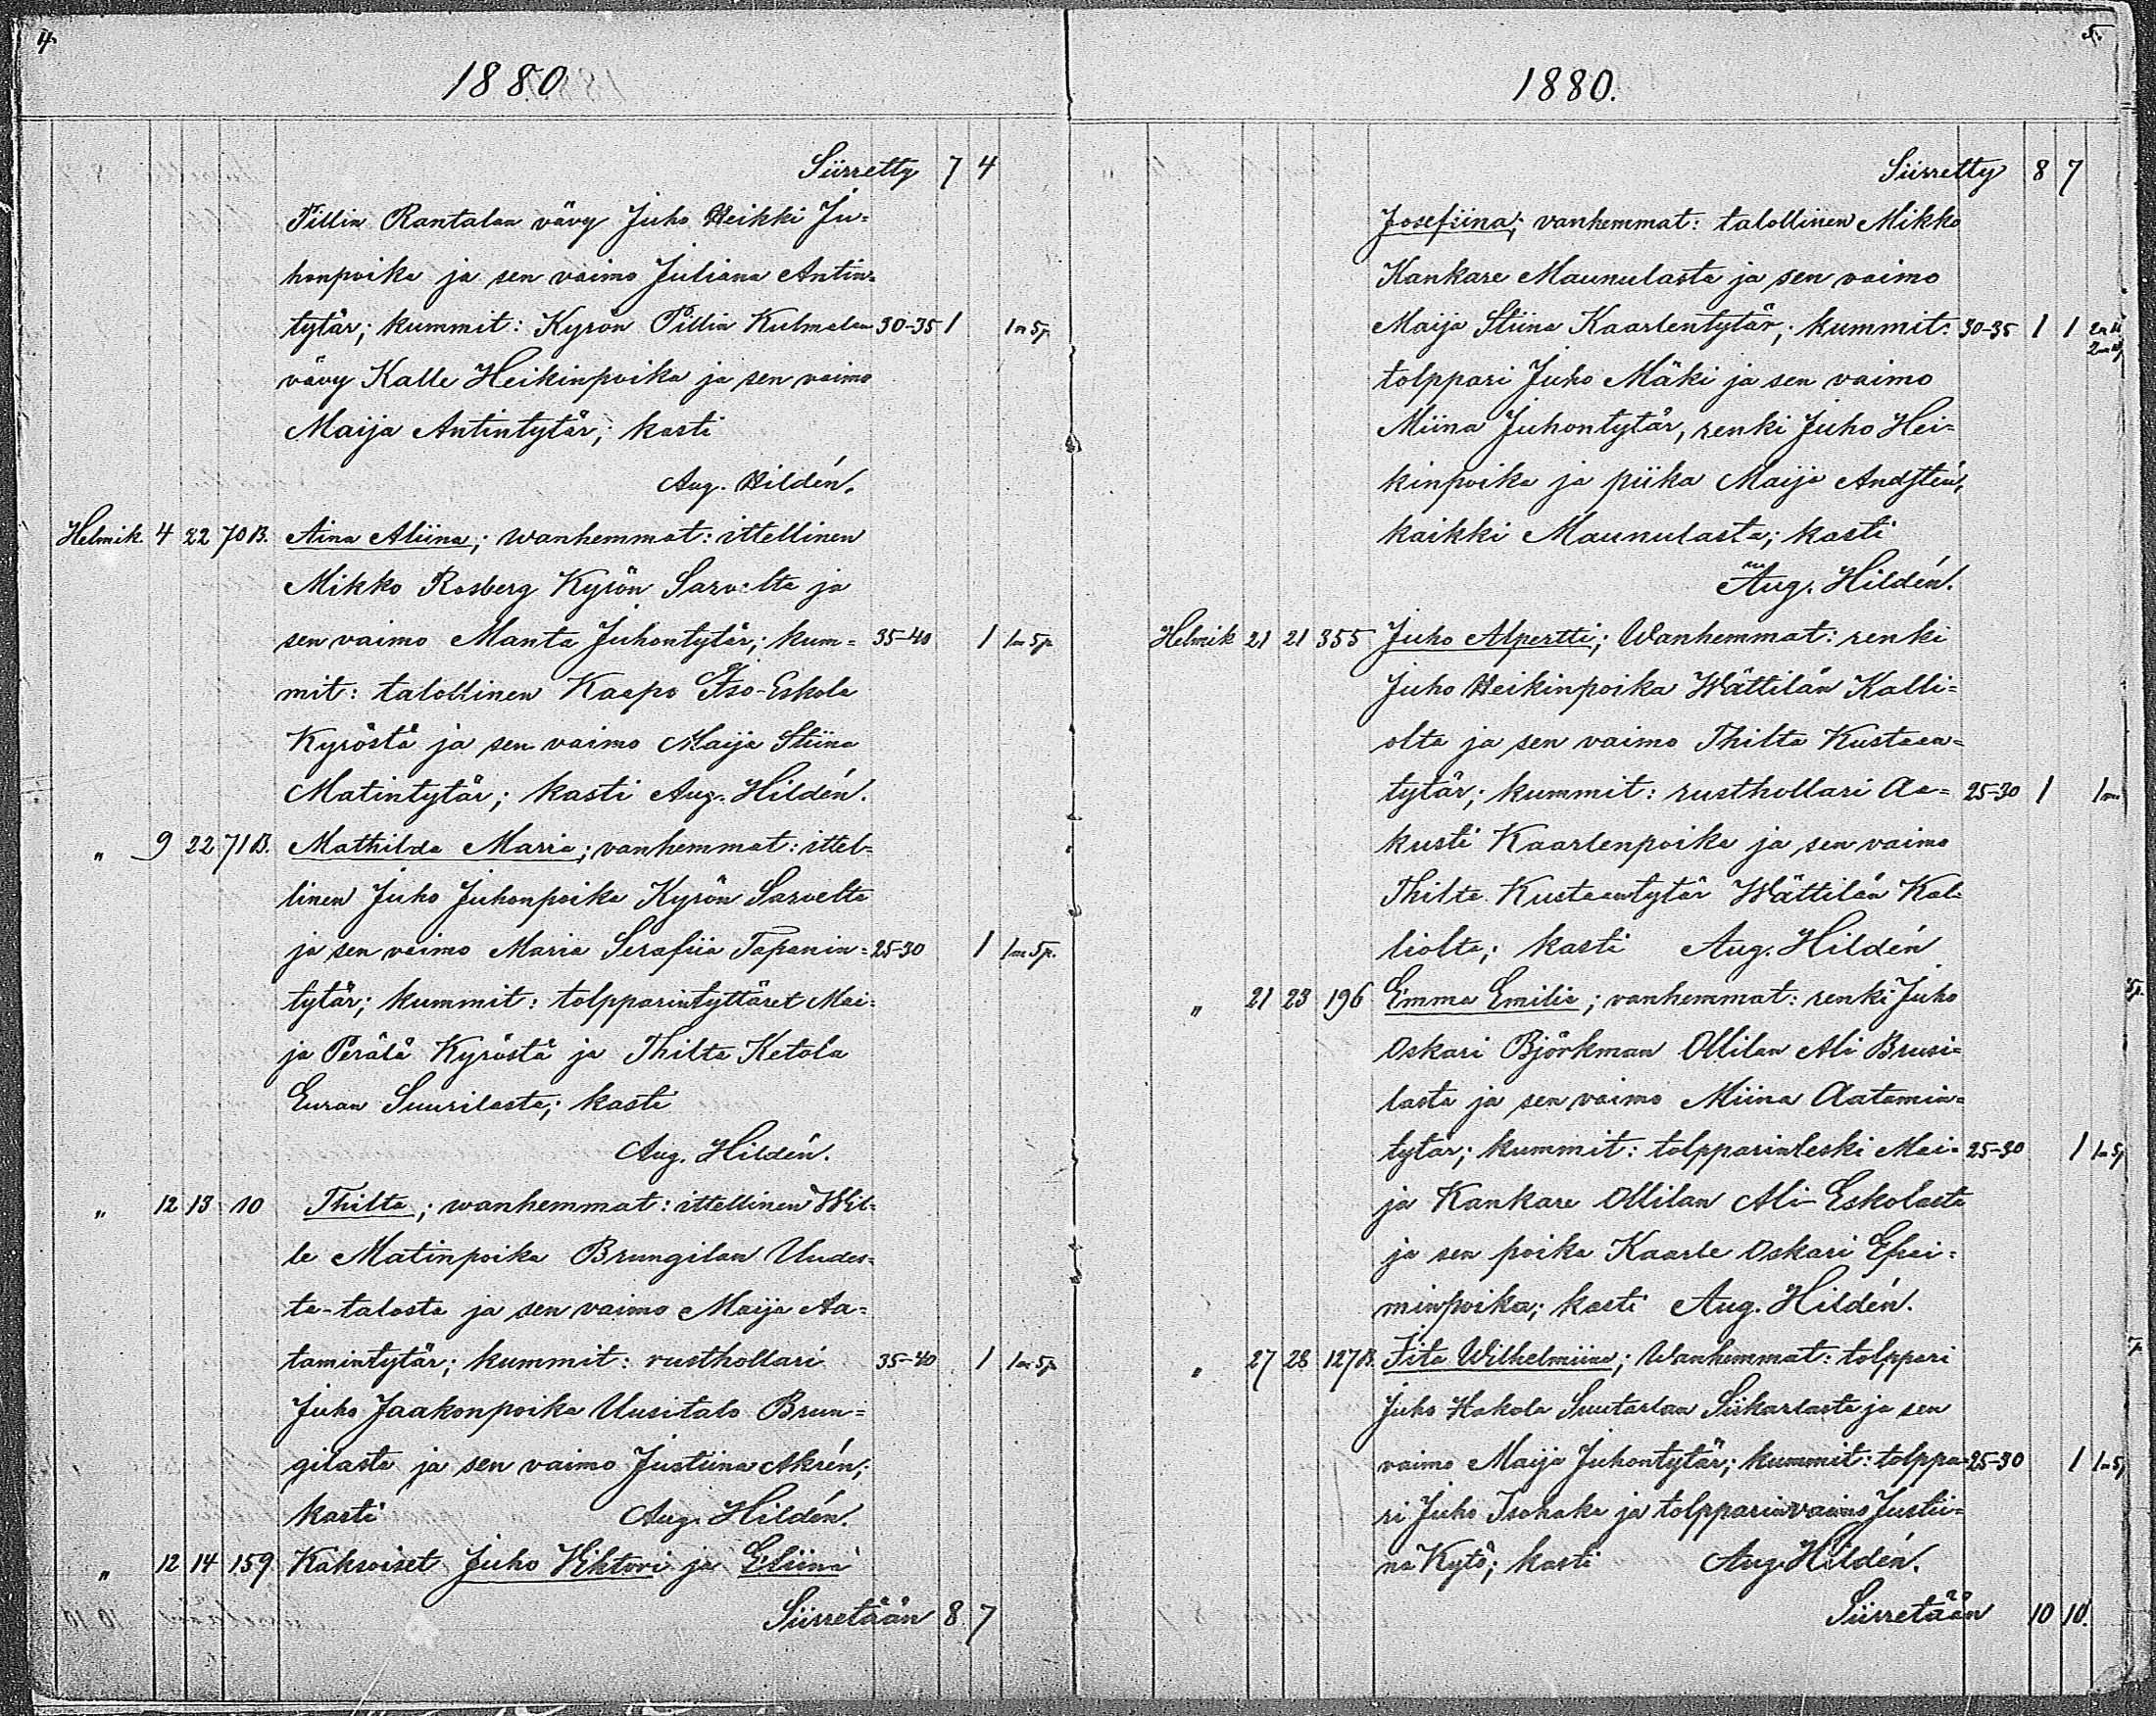 4.
1880
Siirretty 7 4
Pillin Rantalan vävy Juho Heikki Ju=
honpoika ja sen vaimo Juliana Antin=
tytär; kummit: Kyrön Pillin Kulmalan 30-35 1 1 m 5 p.
vävy Kalle Heikinpoika ja sen vaimo
Maija Antintytär; kasti
Aug. Hildén.
Helmik. 4 22 70 B. Aina Aliina; wanhemmat: ittellinen
Mikko Rosberg Kyrön Sarvelta ja
sen vaimo Manta Juhontytär; kum= 35-40 1 1 m 5 p.
mit: talollinen Kaapo Iso-Eskola
Kyröstä ja sen vaimo Maija Stiina
Matintytär; kasti Aug. Hildén.
" 9 22 71 B. Mathilda Maria; vanhemmat: ittel=
linen Juho Juhonpoika Kyrön Sarvelta
ja sen vaimo Maria Serafiia Tapanin= 25-30 1 1 m 5 p.
tytär; kummit: tolpparintyttäret Mai=
ja Perälä Kyröstä ja Thilta Ketola
Euran Suurilasta; kasti
Aug. Hildén.
" 12 13 10 Thilta; wanhemmat: ittellinen Wil=
le Matinpoika Brungilan Uudes=
ta-talosta ja sen vaimo Maija Aa=
tamintytär; kummit: rusthollari 35-40 1 1 m 5 p.
Juho Jaakonpoika Uusitalo Brun=
gilasta ja sen vaimo Justiina Akrén;
kasti Aug. Hildén.
" 12 14 159 Kaksoiset Juho Viktori ja Eliina
Siirretään 8 7
5.
1880.
Siirretty 8 7
Josefiina; vanhemmat: talollinen Mikko
Kankare Maunulasta ja sen vaimo
Maija Stiina Kaarlentytär; kummit: 30-35 1 1
tolppari Juho Mäki ja sen vaimo
Miina Juhontytär, renki Juho Hei=
kinpoika ja piika Maija Andstén,
kaikki Maunulasta; kasti
Aug. Hildén.
Helmik 21 21 355 Juho Alpertti; Wanhemmat: renki
Juho Heikinpoika Wättilän Kalli=
olta ja sen vaimo Thilta Kustaan=
tytär; kummit: rusthollari Aa= 25-30 1 1 m
kusti Kaarlenpoika ja sen vaimo
Thilta Kustaantytär Wättilän Kal=
liolta; kasti Aug. Hildén
" 21 23 196 Emma Emilia; vanhemmat: renki Juho
Oskari Björkman Ollilan Ali Brusi=
lasta ja sen vaimo Miina Aatamin=
tytär; kummit: tolpparinleski Mai= 25-30 1 1 m 5 p
ja Kankare Ollilan Ali-Eskolasta
ja sen poika Kaarle Oskari Efrai=
minpoika; kasti Aug. Hildén.
" 27 28 127 B. Fita Wilhelmiina; Wanhemmat: tolppari
Juho Hakola Suutarlan Siikarlasta ja sen
vaimo Maija Juhontytär; kummit: tolppa= 25-30 1 1 m 5 p
ri Juho Isohaka ja tolpparinvaimo Justii=
na Kytö; kasti Aug. Hildén.
Siirretään 10 10.